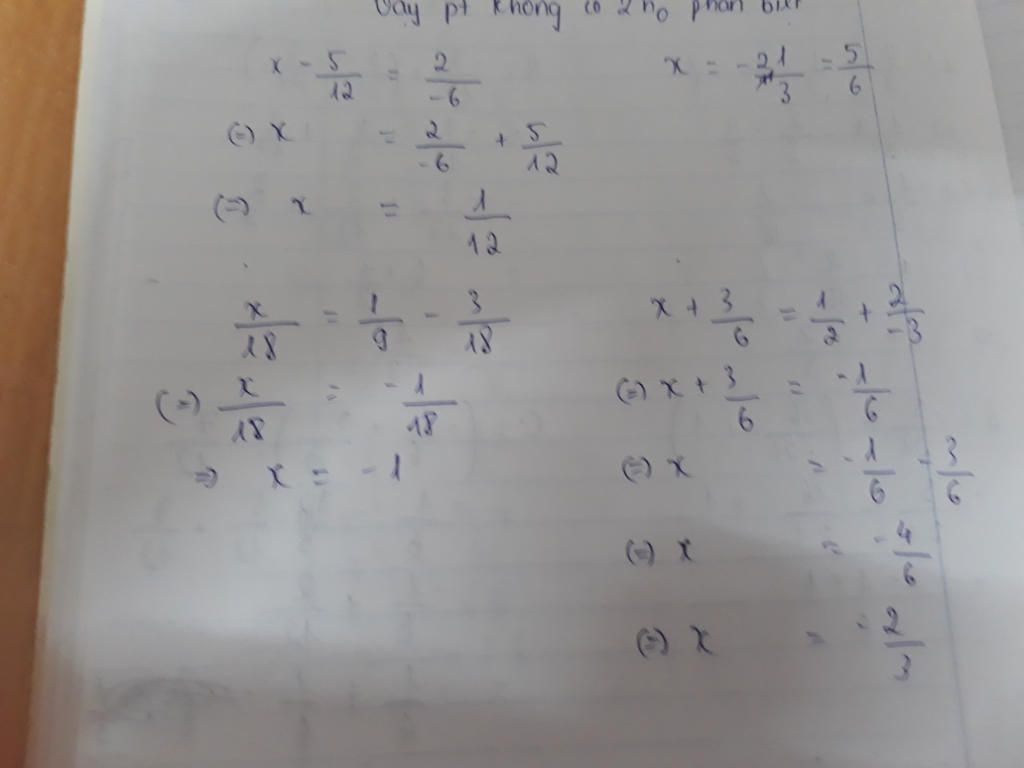 Vậy pt không có 2 n₀ phân biệt
x - 5/12 = 2/-6
(=) x = 2/-6 + 5/12
(=) x = 1/12
x = - 21/3 = 5/6
x/18 = 1/9 - 3/18
(=) x/18 = -1/18
=> x = -1
x + 3/6 = 1/2 + 2/-3
(=) x + 3/6 = -1/6
(=) x = -1/6 - 3/6
(=) x = -4/6
(=) x = -2/3